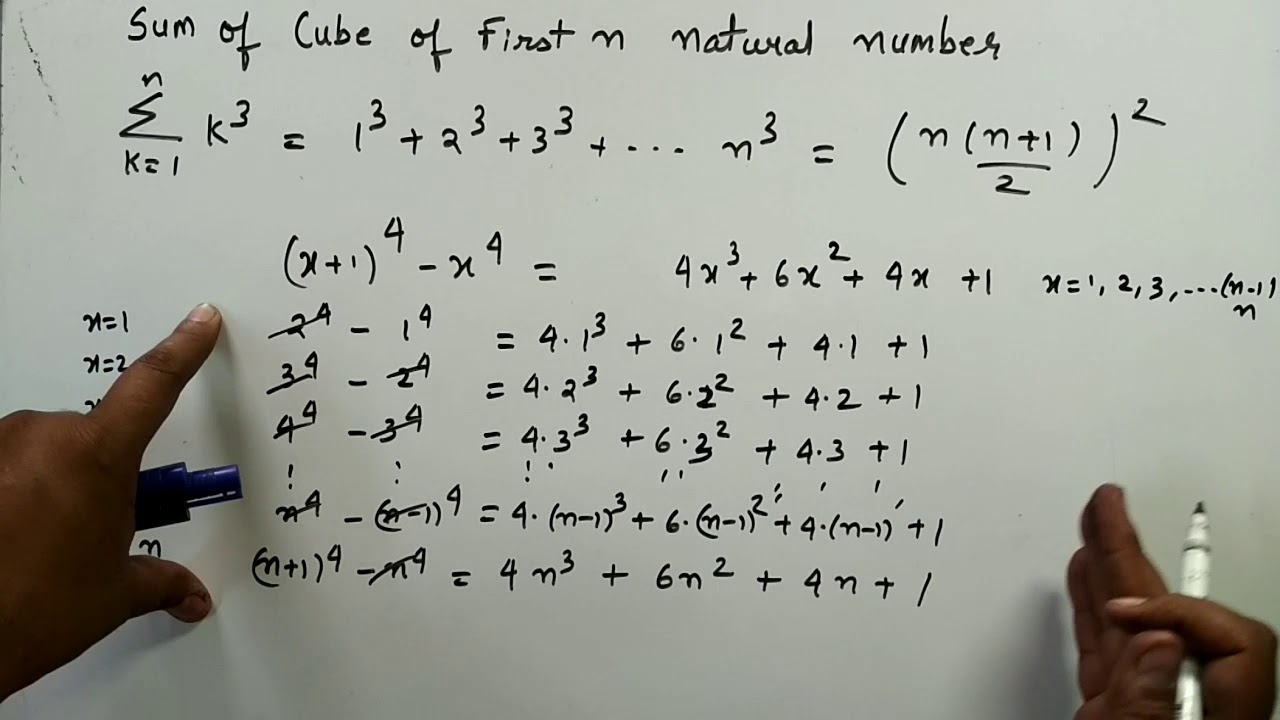 Sum of Cube of First n natural number
n
∑ k³ = 1³ + 2³ + 3³ + ... n³ = (n(n+1)/2)²
k=1
(x+1)⁴ - x⁴ = 4x³ + 6x² + 4x + 1 x = 1, 2, 3, ... (n-1)
n
x=1 2⁴ - 1⁴ = 4·1³ + 6·1² + 4·1 + 1
x=2 3⁴ - 2⁴ = 4·2³ + 6·2² + 4·2 + 1
4⁴ - 3⁴ = 4·3³ + 6·3² + 4·3 + 1
n⁴ - (n-1)⁴ = 4·(n-1)³ + 6·(n-1)² + 4·(n-1) + 1
n (n+1)⁴ - n⁴ = 4n³ + 6n² + 4n + 1